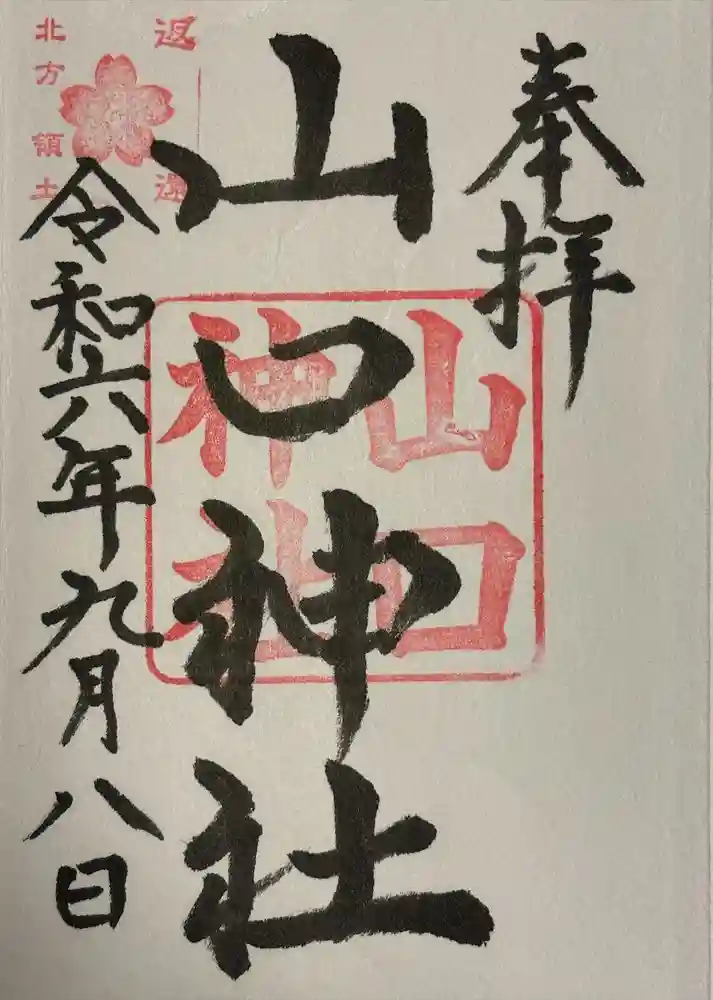 奉拝
山口神社
山口
神社
返還
北方領土
令和六年九月八日